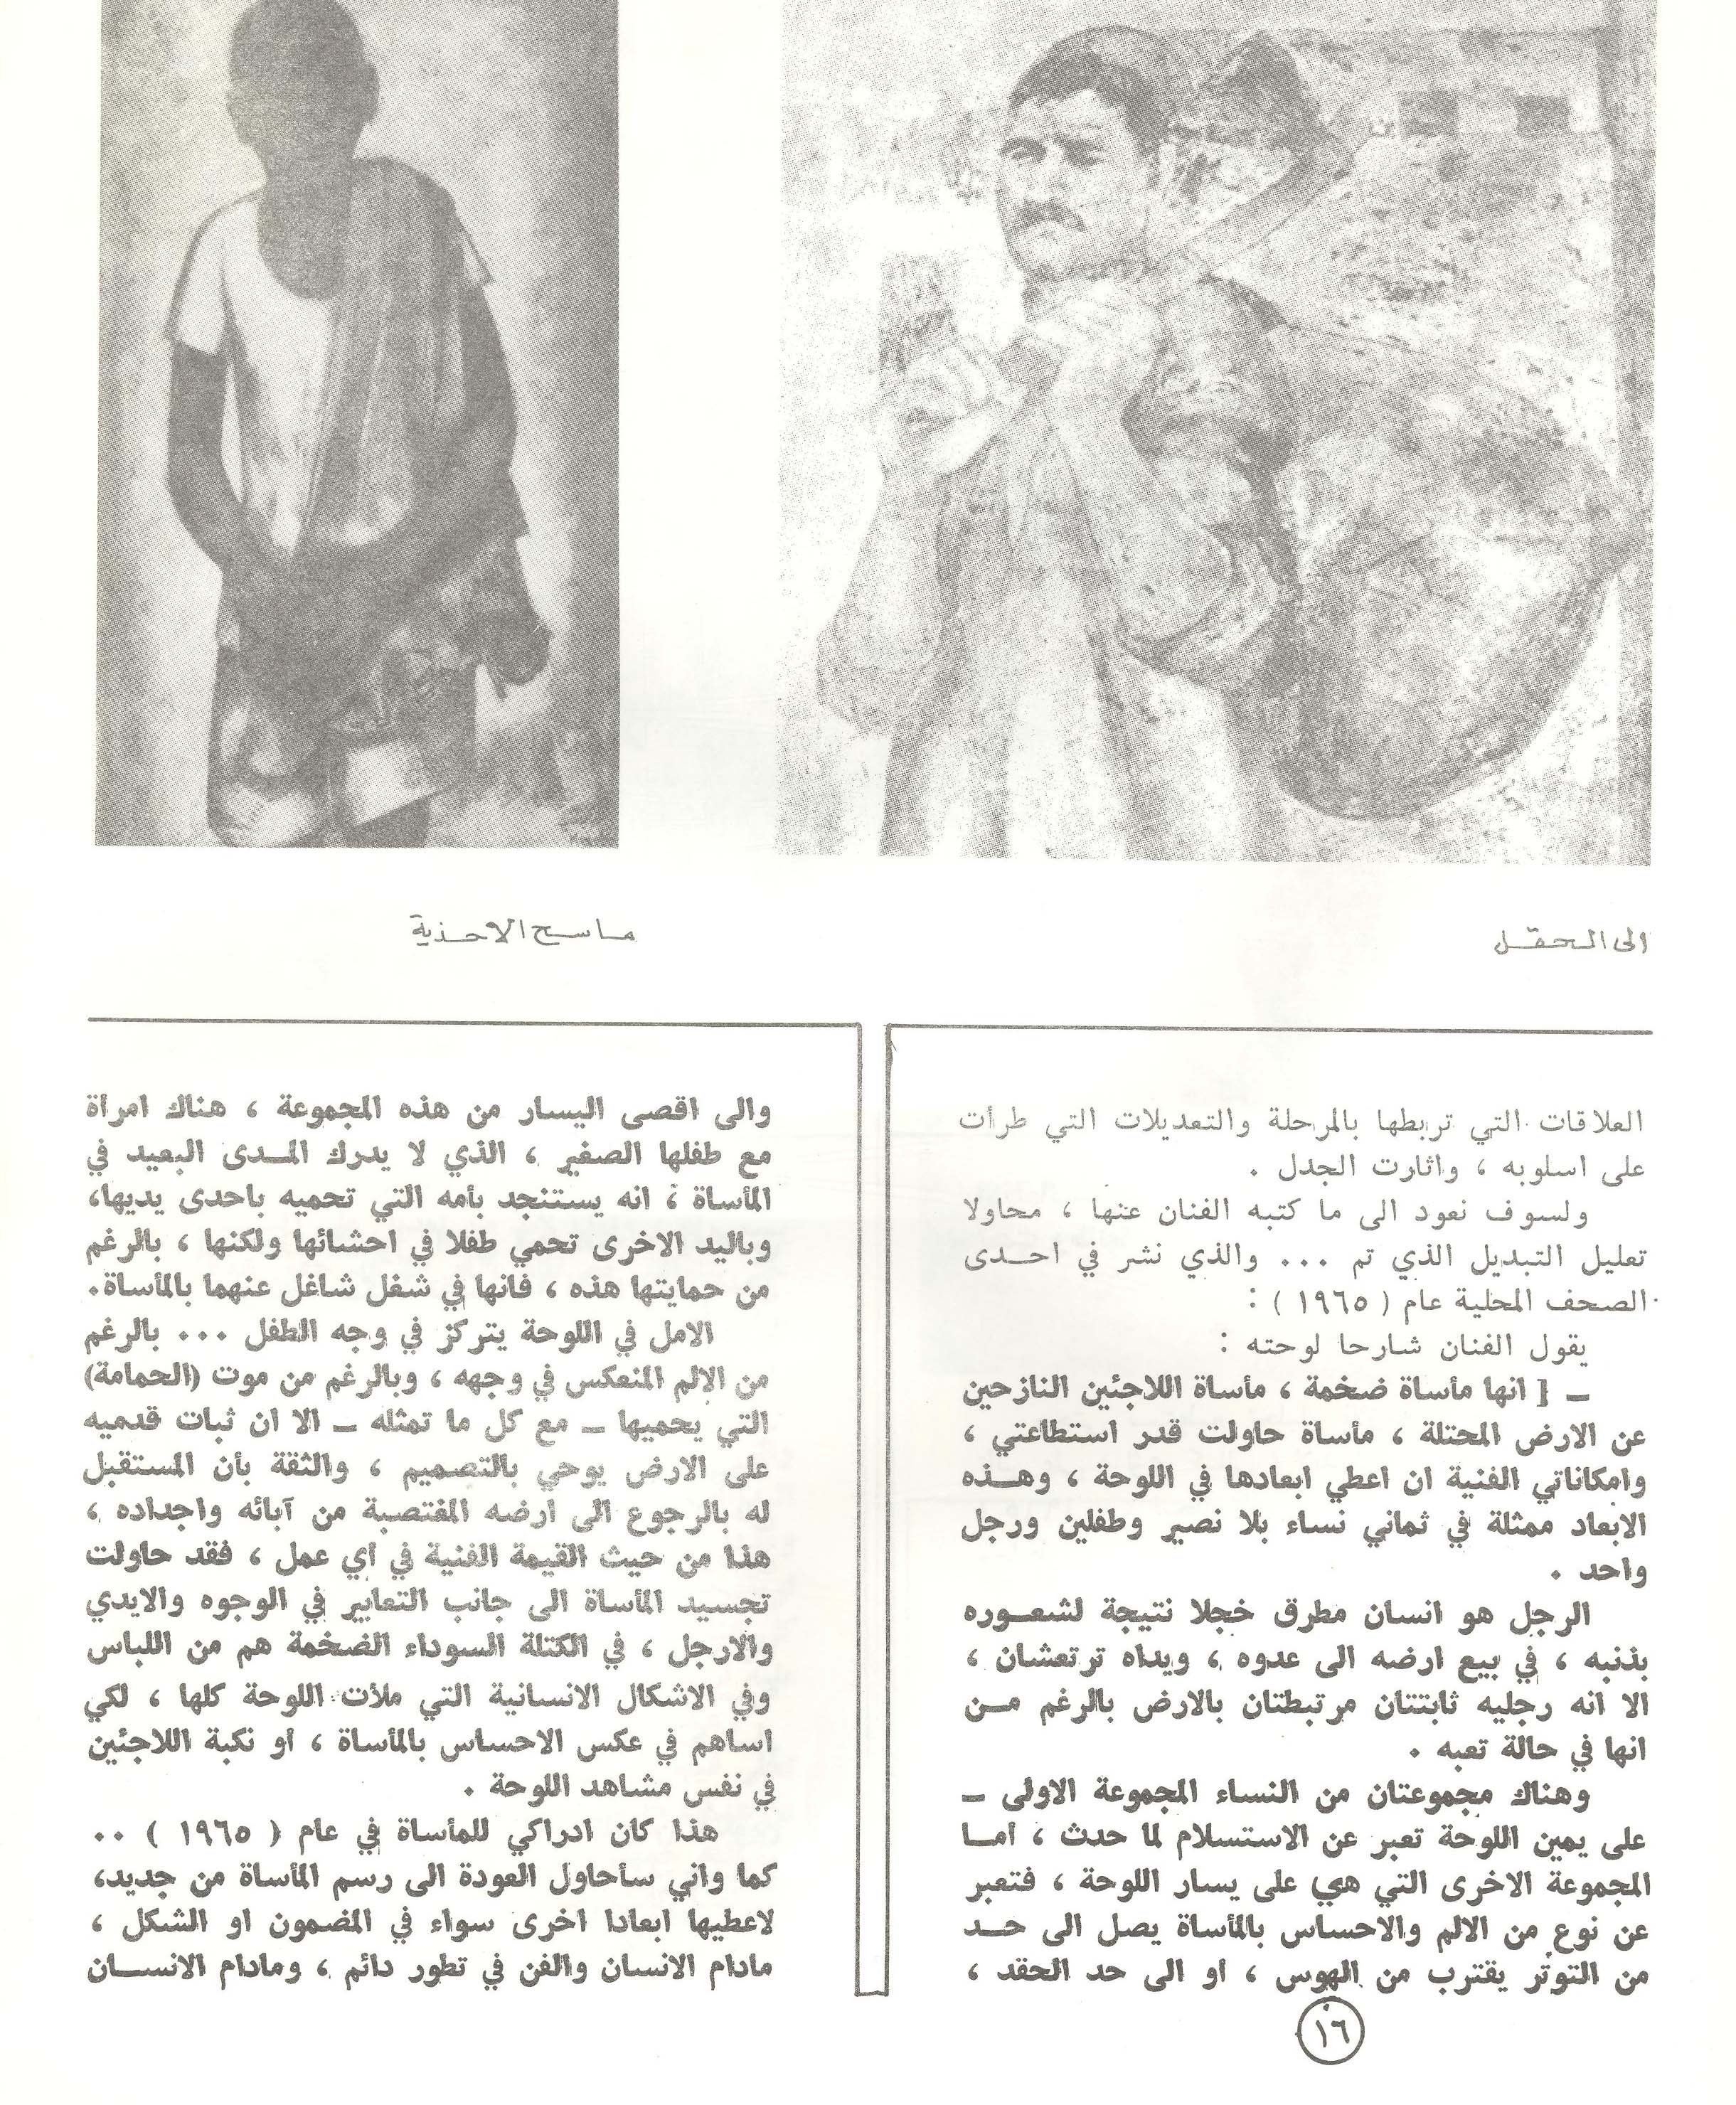 الى الحقل
ماسح الاحذية
العلاقات التي تربطها بالمرحلة والتعديلات التي طرأت
على اسلوبه ، واثارت الجدل .
ولسوف نعود الى ما كتبه الفنان عنها ، محاولا
تعليل التبديل الذي تم ... والذي نشر في احدى
الصحف المحلية عام ( ١٩٦٥ ) :
يقول الفنان شارحا لوحته :
ــ [ انها مأساة ضخمة ، مأساة اللاجئين النازحين
عن الارض المحتلة ، مأساة حاولت قدر استطاعتي ،
وامكاناتي الفنية ان اعطي ابعادها في اللوحة ، وهذه
الابعاد ممثلة في ثماني نساء بلا نصير وطفلين ورجل
واحد .
الرجل هو انسان مطرق خجلا نتيجة لشعوره
بذنبه ، في بيع ارضه الى عدوه ، ويداه ترتعشان ،
الا انه رجليه ثابتتان مرتبطتان بالارض بالرغم من
انها في حالة تعبه .
وهناك مجموعتان من النساء المجموعة الاولى ــ
على يمين اللوحة تعبر عن الاستسلام لما حدث ، أما
المجموعة الاخرى التي هي على يسار اللوحة ، فتعبر
عن نوع من الالم والاحساس بالمأساة يصل الى حد
من التوتر يقترب من الهوس ، او الى حد الحقد ،
والى اقصى اليسار من هذه المجموعة ، هناك امرأة
مع طفلها الصغير ، الذي لا يدرك المدى البعيد في
المأساة ، انه يستنجد بأمه التي تحميه باحدى يديها،
وباليد الاخرى تحمي طفلا في احشائها ولكنها ، بالرغم
من حمايتها هذه ، فانها في شغل شاغل عنهما بالمأساة.
الامل في اللوحة يتركز في وجه الطفل ... بالرغم
من الالم المنعكس في وجهه ، وبالرغم من موت (الحمامة)
التي يحميها ــ مع كل ما تمثله ــ الا ان ثبات قدميه
على الارض يوحي بالتصميم ، والثقة بأن المستقبل
له بالرجوع الى ارضه المغتصبة من آبائه واجداده ،
هذا من حيث القيمة الفنية في اي عمل ، فقد حاولت
تجسيد المأساة الى جانب التعابير في الوجوه والايدي
والارجل ، في الكتلة السوداء الضخمة هم من اللباس
وفي الاشكال الانسانية التي ملأت اللوحة كلها ، لكي
اساهم في عكس الاحساس بالمأساة ، أو نكبة اللاجئين
في نفس مشاهد اللوحة .
هذا كان ادراكي للمأساة في عام ( ١٩٦٥ ) ..
كما واني سأحاول العودة الى رسم المأساة من جديد،
لاعطيها ابعادا اخرى سواء في المضمون او الشكل ،
مادام الانسان والفن في تطور دائم ، ومادام الانسان
١٦